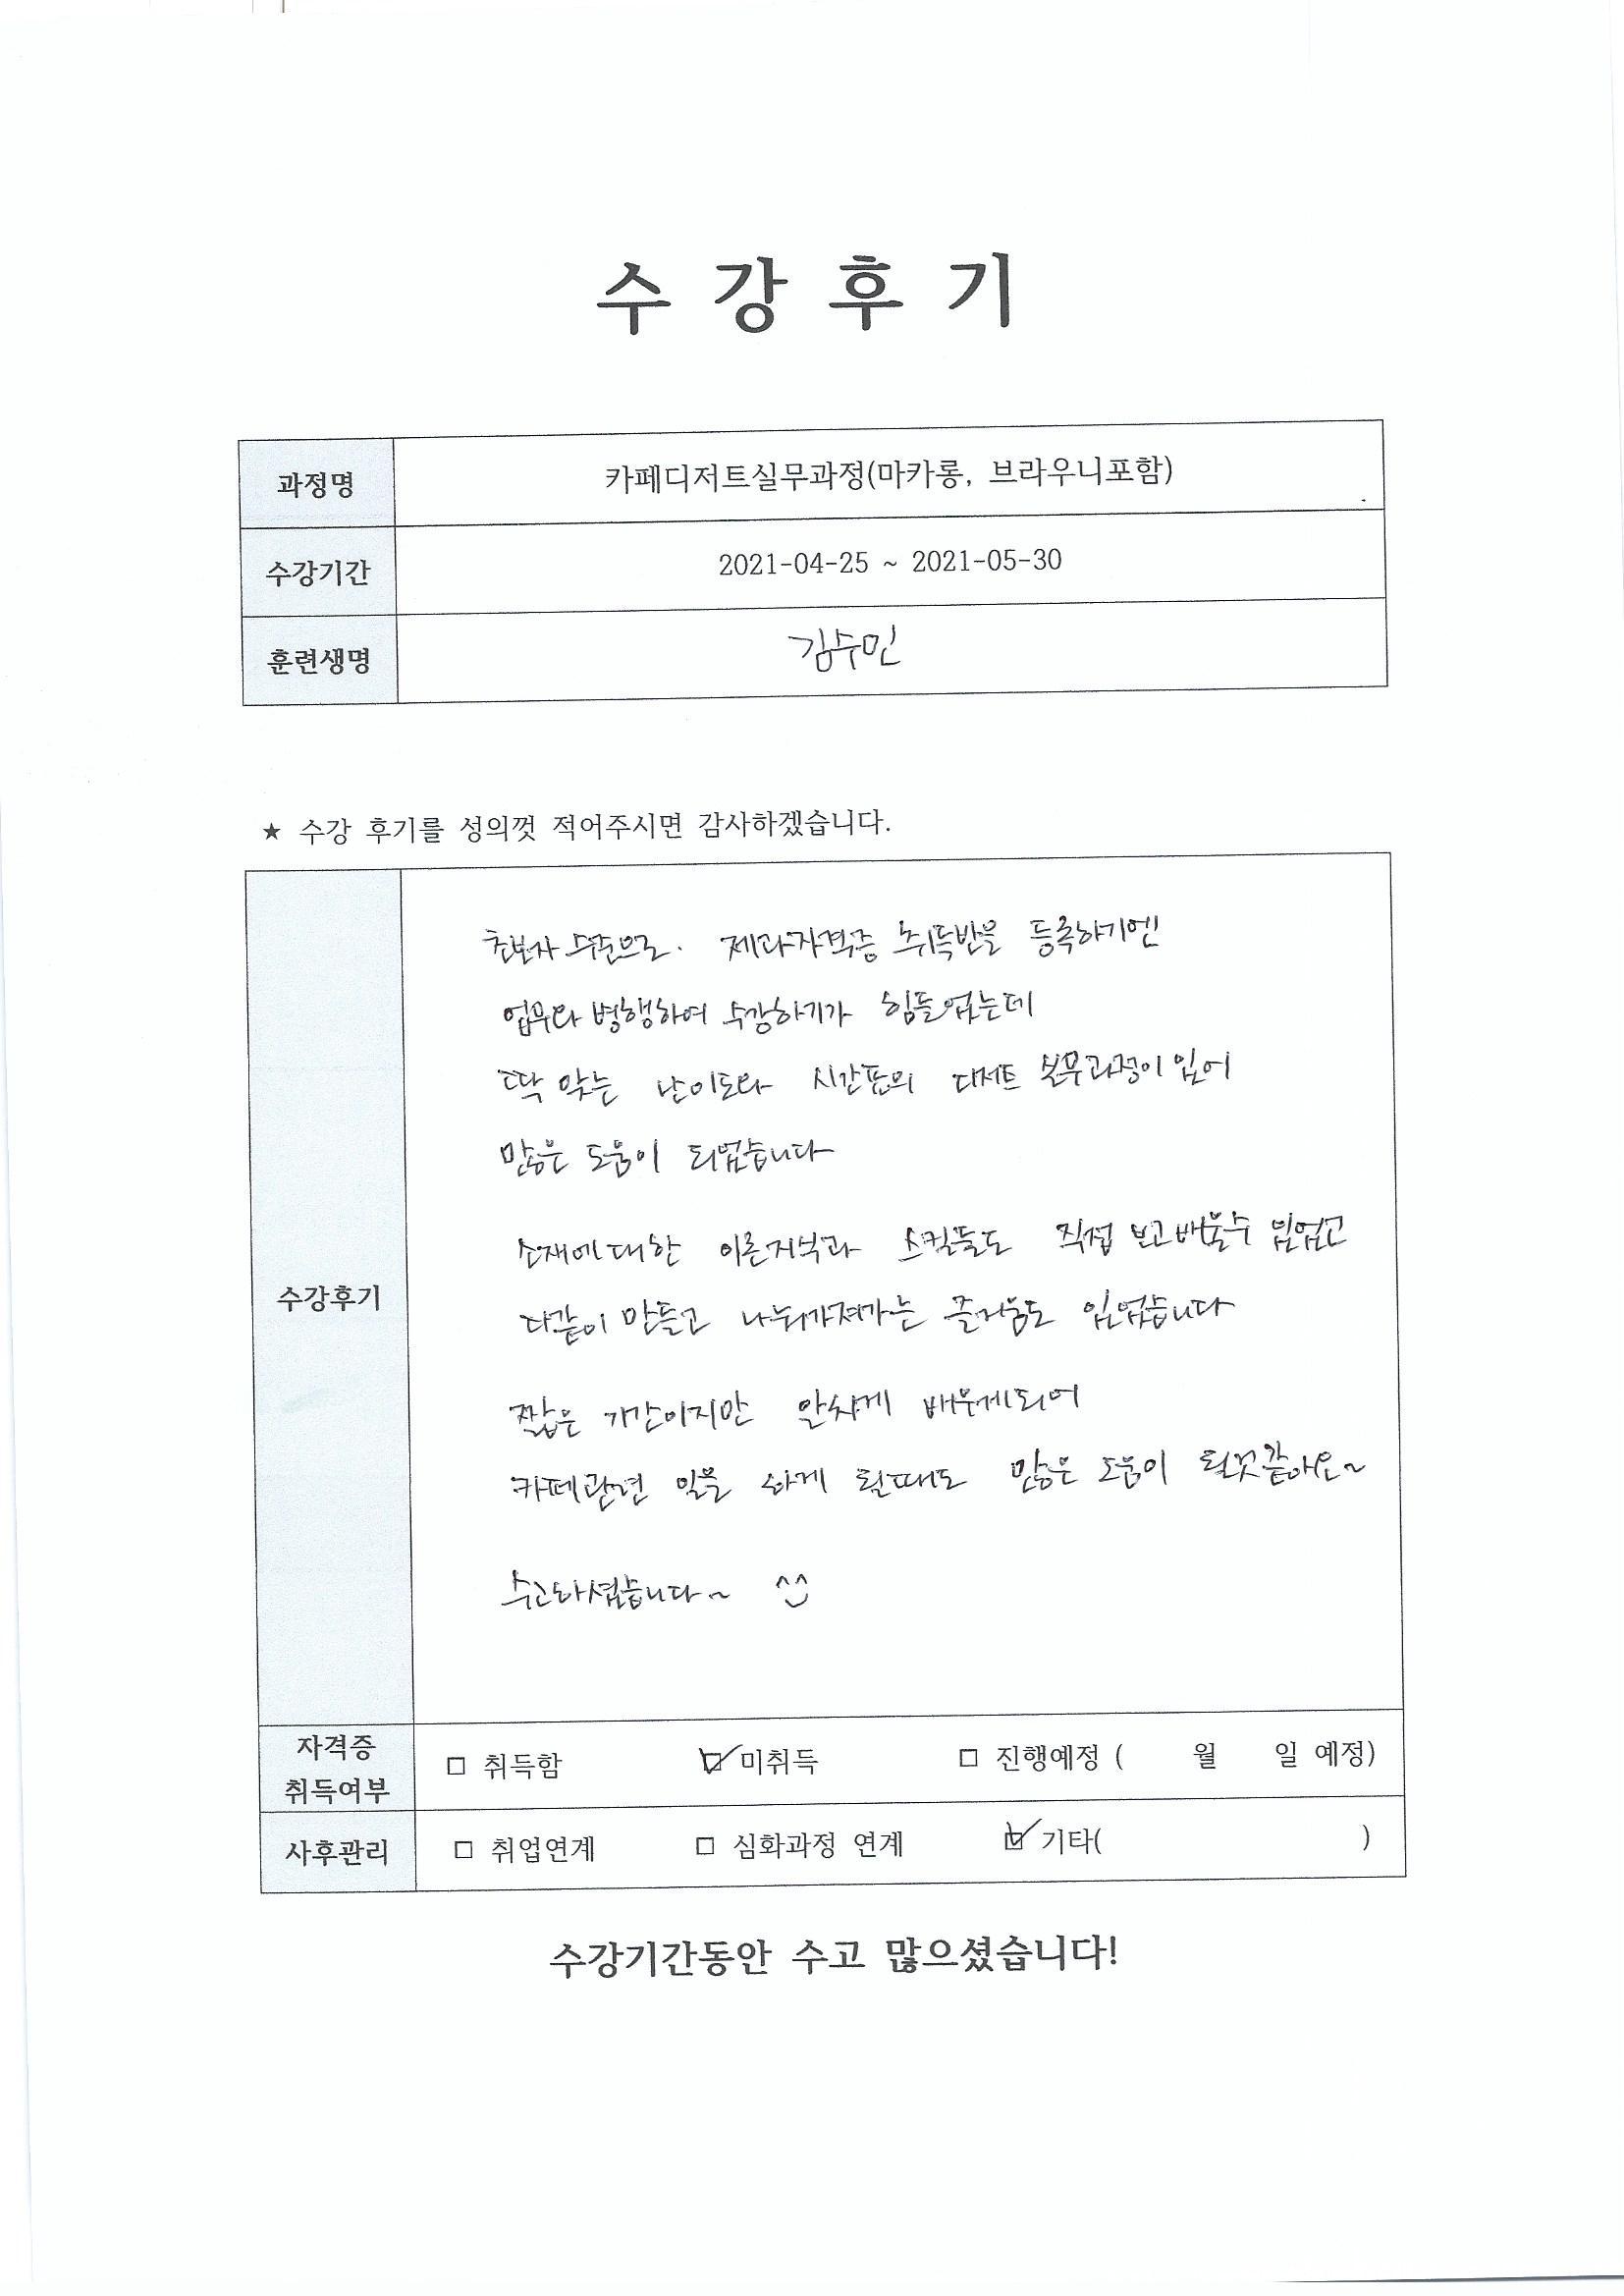 수강후기
과정명 카페디저트실무과정(마카롱, 브라우니포함)
수강기간 2021-04-25 ~ 2021-05-30
훈련생명 김수민
★ 수강 후기를 성의껏 적어주시면 감사하겠습니다.
초보자 수준으로. 제과자격증 취득반을 등록하기엔
업무와 병행하여 수강하기가 힘들었는데
딱 맞는 난이도와 시간표의 디저트 실무과정이 있어
많은 도움이 되었습니다
소재에 대한 이론지식과 스킬들도 직접 보고배울수 있었고
다같이 만들고 나눠가져가는 즐거움도 있었습니다
수강후기
짧은 기간이지만 알차게 배우게되어
카페관련 일을 하게 될때도 많은 도움이 될것같아요~
수고하셨습니다~ ^^
자격증 취득여부 □ 취득함 ☑ 미취득 □ 진행예정 ( 월 일 예정)
사후관리 □ 취업연계 □ 심화과정 연계 ☑ 기타( )
수강기간동안 수고 많으셨습니다!